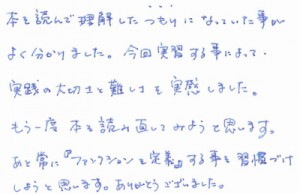 本を読んで理解したつもりになっていた事が
よく分かりました。今回実習する事によって、
実践の大切さと難しさを実感しました。
もう一度本を読み直してみようと思います。
あと常に『ファンクションを定義』する事を習慣づけ
しようと思います。ありがとうございました。